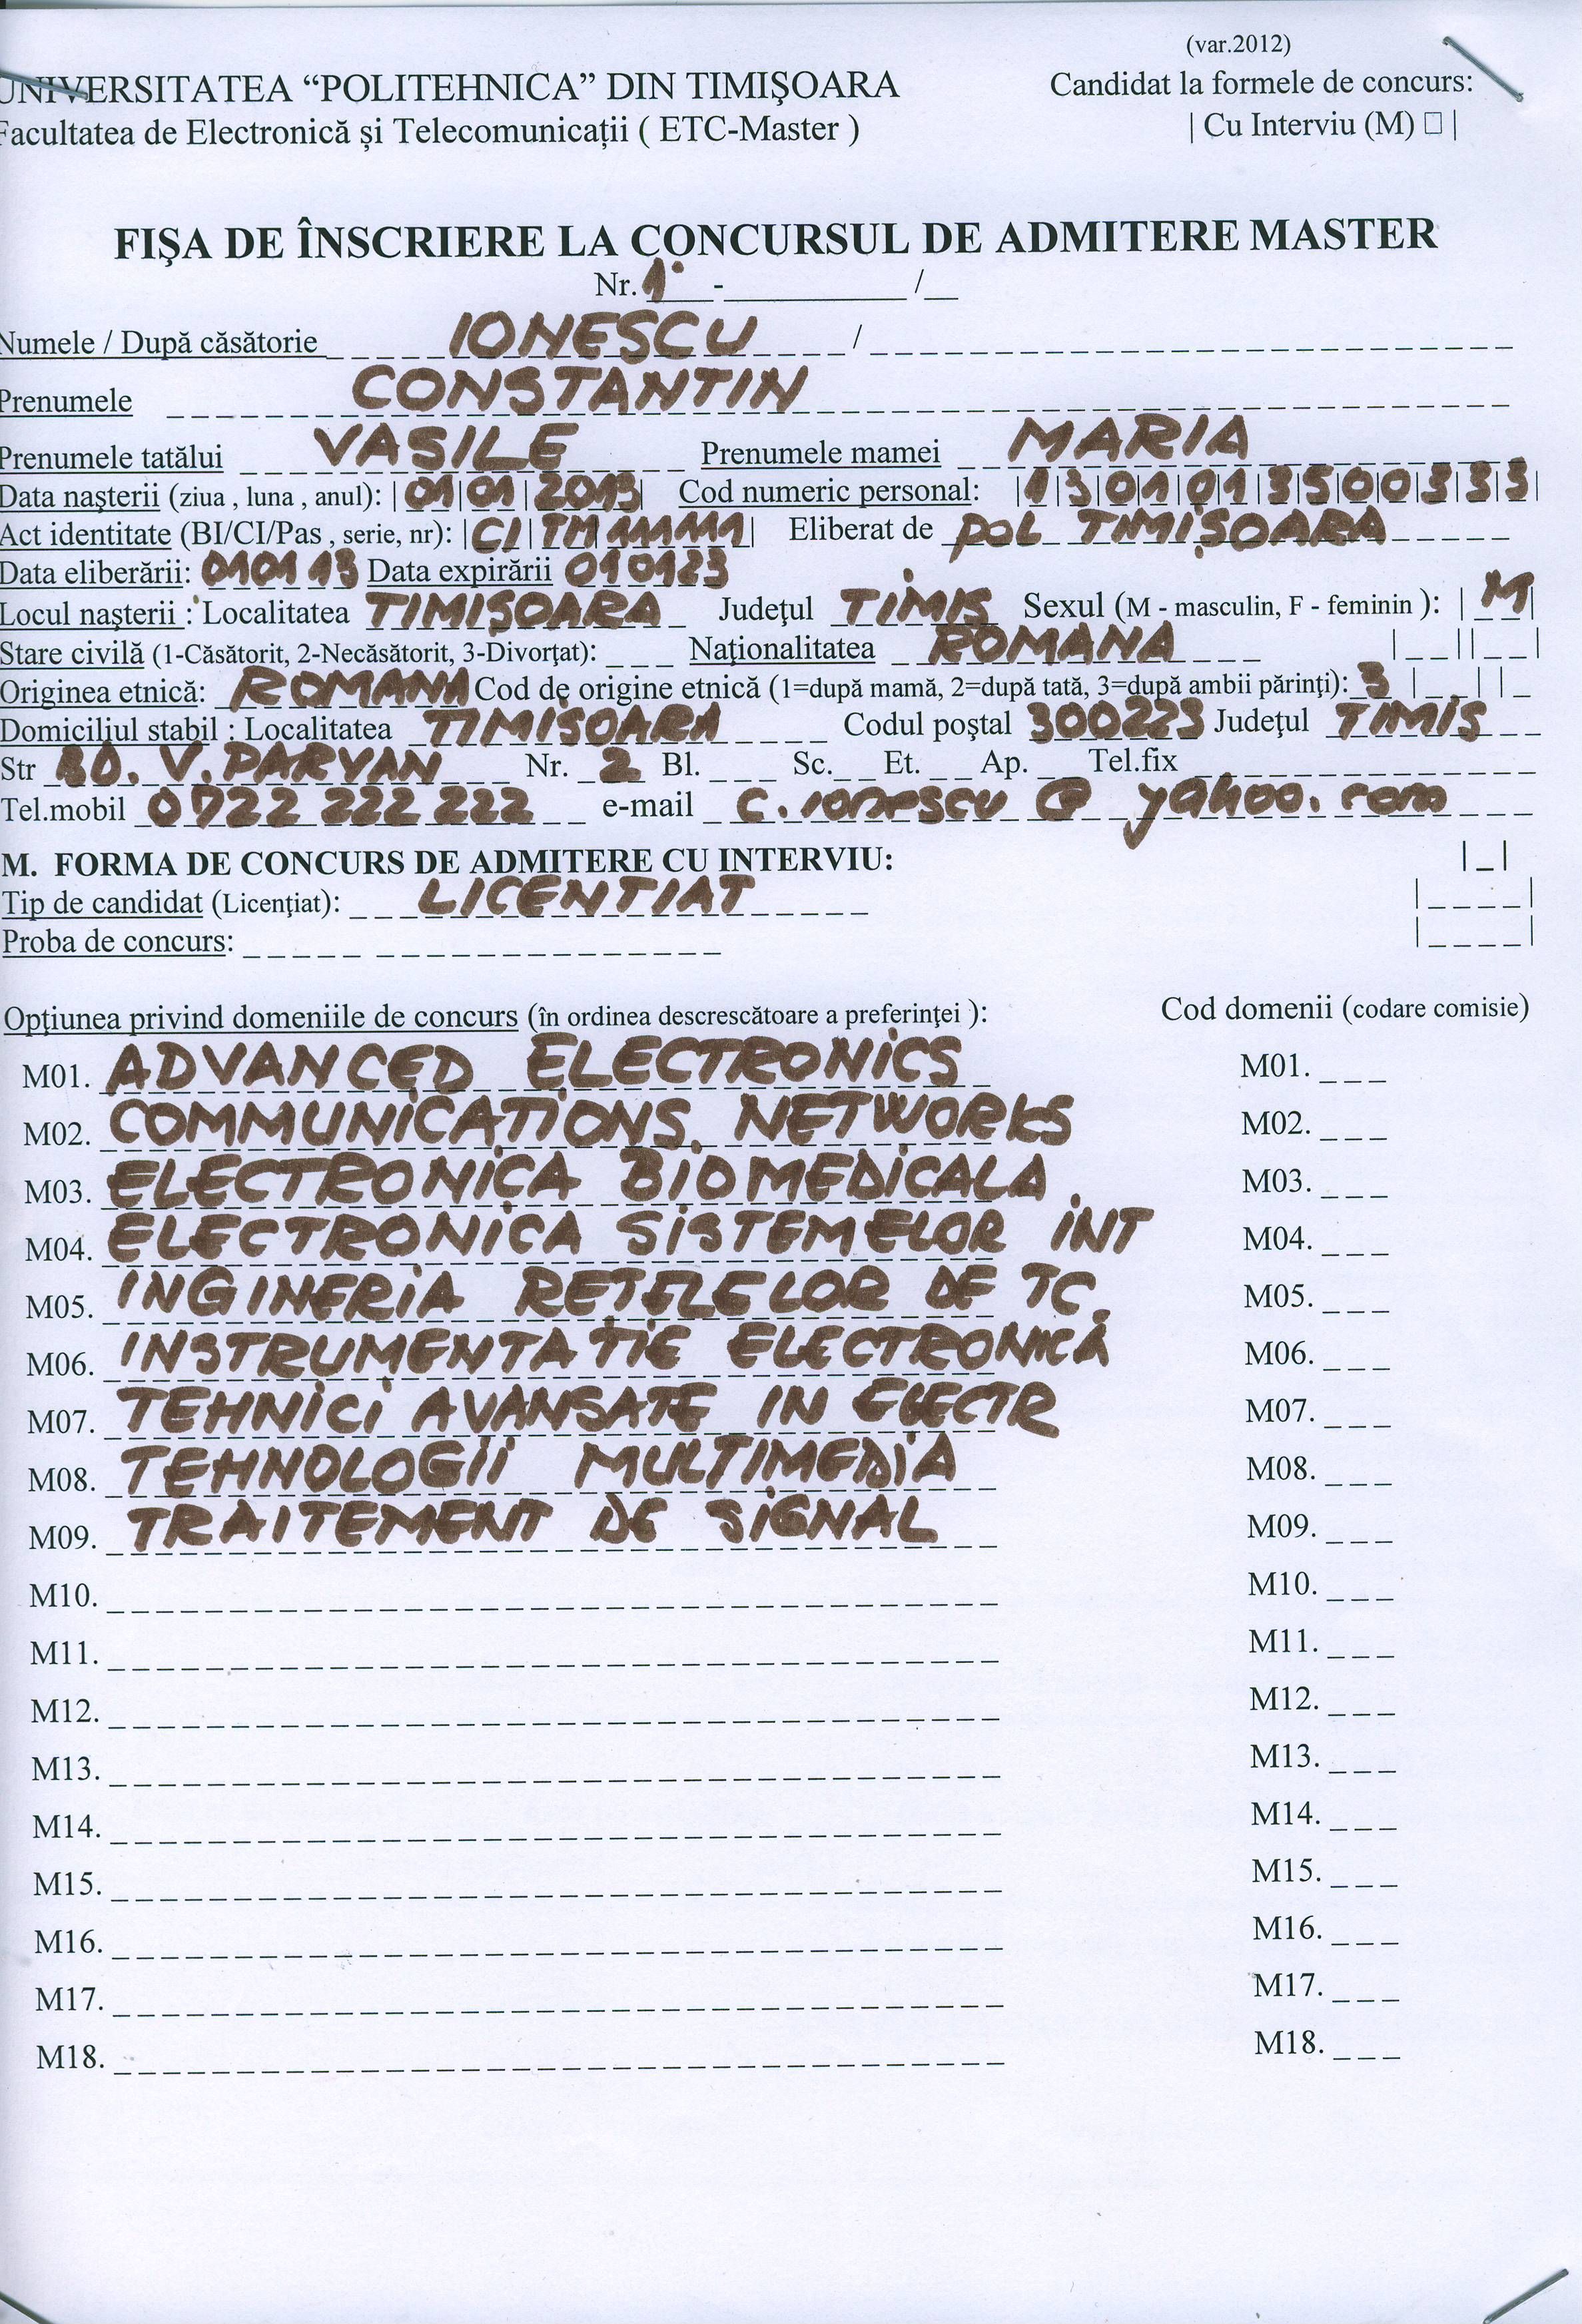 (var.2012)
UNIVERSITATEA “POLITEHNICA” DIN TIMIŞOARA Candidat la formele de concurs:
Facultatea de Electronică și Telecomunicații ( ETC-Master ) | Cu Interviu (M) □ |
FIŞA DE ÎNSCRIERE LA CONCURSUL DE ADMITERE MASTER
Nr. 1 ___-__________ /__
Numele / După căsătorie IONESCU /
Prenumele CONSTANTIN
Prenumele tatălui VASILE Prenumele mamei MARIA
Data naşterii (ziua , luna , anul): |01|01|2013| Cod numeric personal: |1|3|0|1|0|1|3|5|0|0|3|3|3|
Act identitate (BI/CI/Pas , serie, nr): |CI|TM| 111111| Eliberat de POL TIMIŞOARA
Data eliberării: 010113 Data expirării 010123
Locul naşterii : Localitatea TIMIŞOARA Judeţul TIMIS Sexul (M - masculin, F - feminin ): | M|
Stare civilă (1-Căsătorit, 2-Necăsătorit, 3-Divorţat): _ _ _ Naţionalitatea ROMANA |_ _||_ _|
Originea etnică: ROMANA Cod de origine etnică (1=după mamă, 2=după tată, 3=după ambii părinţi): 3 |_ _||_
Domiciliul stabil : Localitatea TIMISOARA Codul poştal 300223 Judeţul TIMIS
Str BD. V. PARVAN Nr. 2 Bl. _ _ _ Sc. _ _ Et. _ _ Ap. _ _ Tel.fix
Tel.mobil 0722 222 222 e-mail c.ionescu @ yahoo.com
M. FORMA DE CONCURS DE ADMITERE CU INTERVIU: |_|
Tip de candidat (Licenţiat): LICENTIAT |_ _ _ _|
Proba de concurs: |_ _ _ _|
Opţiunea privind domeniile de concurs (în ordinea descrescătoare a preferinţei ): Cod domenii (codare comisie)
M01. ADVANCED ELECTRONICS M01. _ _ _
M02. COMMUNICATIONS NETWORKS M02. _ _ _
M03. ELECTRONICA BIOMEDICALA M03. _ _ _
M04. ELECTRONICA SISTEMELOR INT M04. _ _ _
M05. INGINERIA RETELELOR DE TC M05. _ _ _
M06. INSTRUMENTATIE ELECTRONICA M06. _ _ _
M07. TEHNICI AVANSATE IN ELECTR M07. _ _ _
M08. TEHNOLOGII MULTIMEDIA M08. _ _ _
M09. TRAITEMENT DE SIGNAL M09. _ _ _
M10. M10. _ _ _
M11. M11. _ _ _
M12. M12. _ _ _
M13. M13. _ _ _
M14. M14. _ _ _
M15. M15. _ _ _
M16. M16. _ _ _
M17. M17. _ _ _
M18. M18. _ _ _